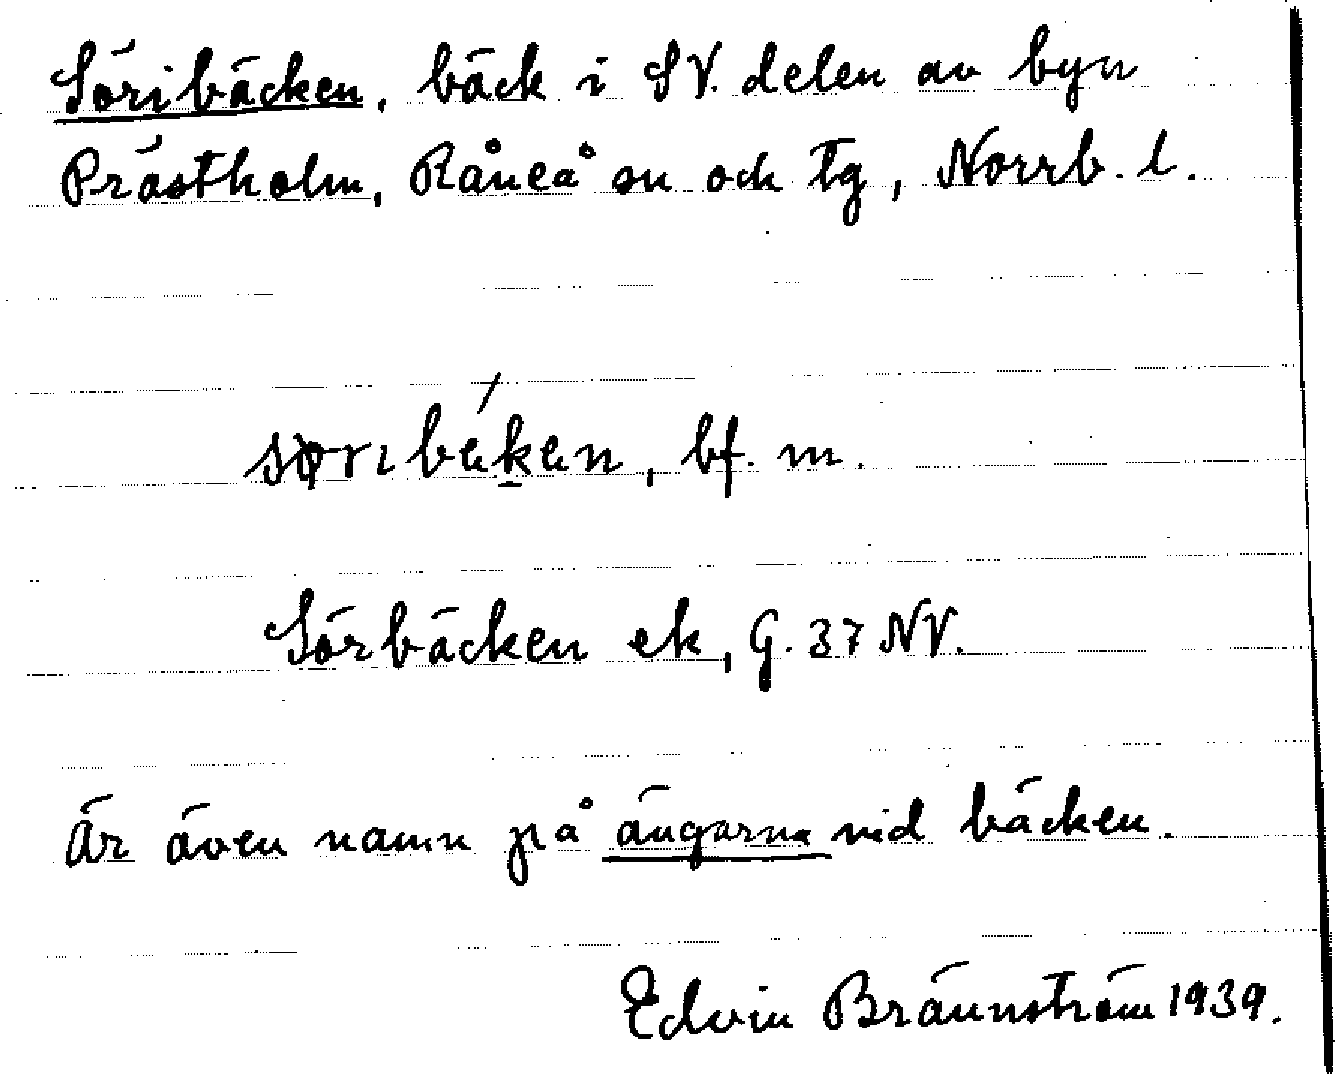 Söribäcken, bäck i SV. delen av byn
Prästholm, Råneå sn och tg, Norrb. l.
bf. m.
Sörbäcken ek, G. 37 NV.
Är även namn på ängarna vid bäcken.
Edvin Brännström 1939.